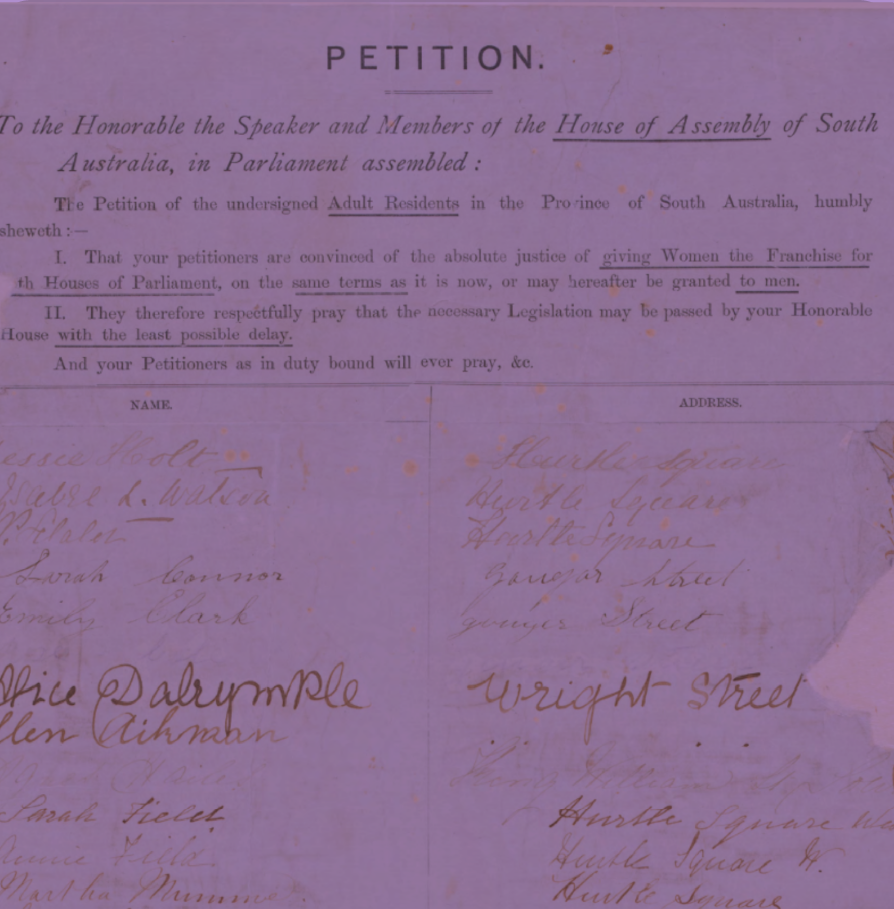 PETITION.
To the Honorable the Speaker and Members of the House of Assembly of South
Australia, in Parliament assembled :
The Petition of the undersigned Adult Residents in the Province of South Australia, humbly
sheweth :—
I. That your petitioners are convinced of the absolute justice of giving Women the Franchise for
th Houses of Parliament, on the same terms as it is now, or may hereafter be granted to men.
II. They therefore respectfully pray that the necessary Legislation may be passed by your Honorable
House with the least possible delay.
And your Petitioners as in duty bound will ever pray, &c.
NAME. ADDRESS.
essie Holt Hurtle Square
L. Watson Hurtle Square
Hurtle Square
Sarah Connor Gouger Street
Emily Clark gouger Street
lice Dalrymple Wright Street
llen Aikman
King
Sarah Field Hurtle Square
Annie Field Hurtle Square W.
Martha Hurtle Square